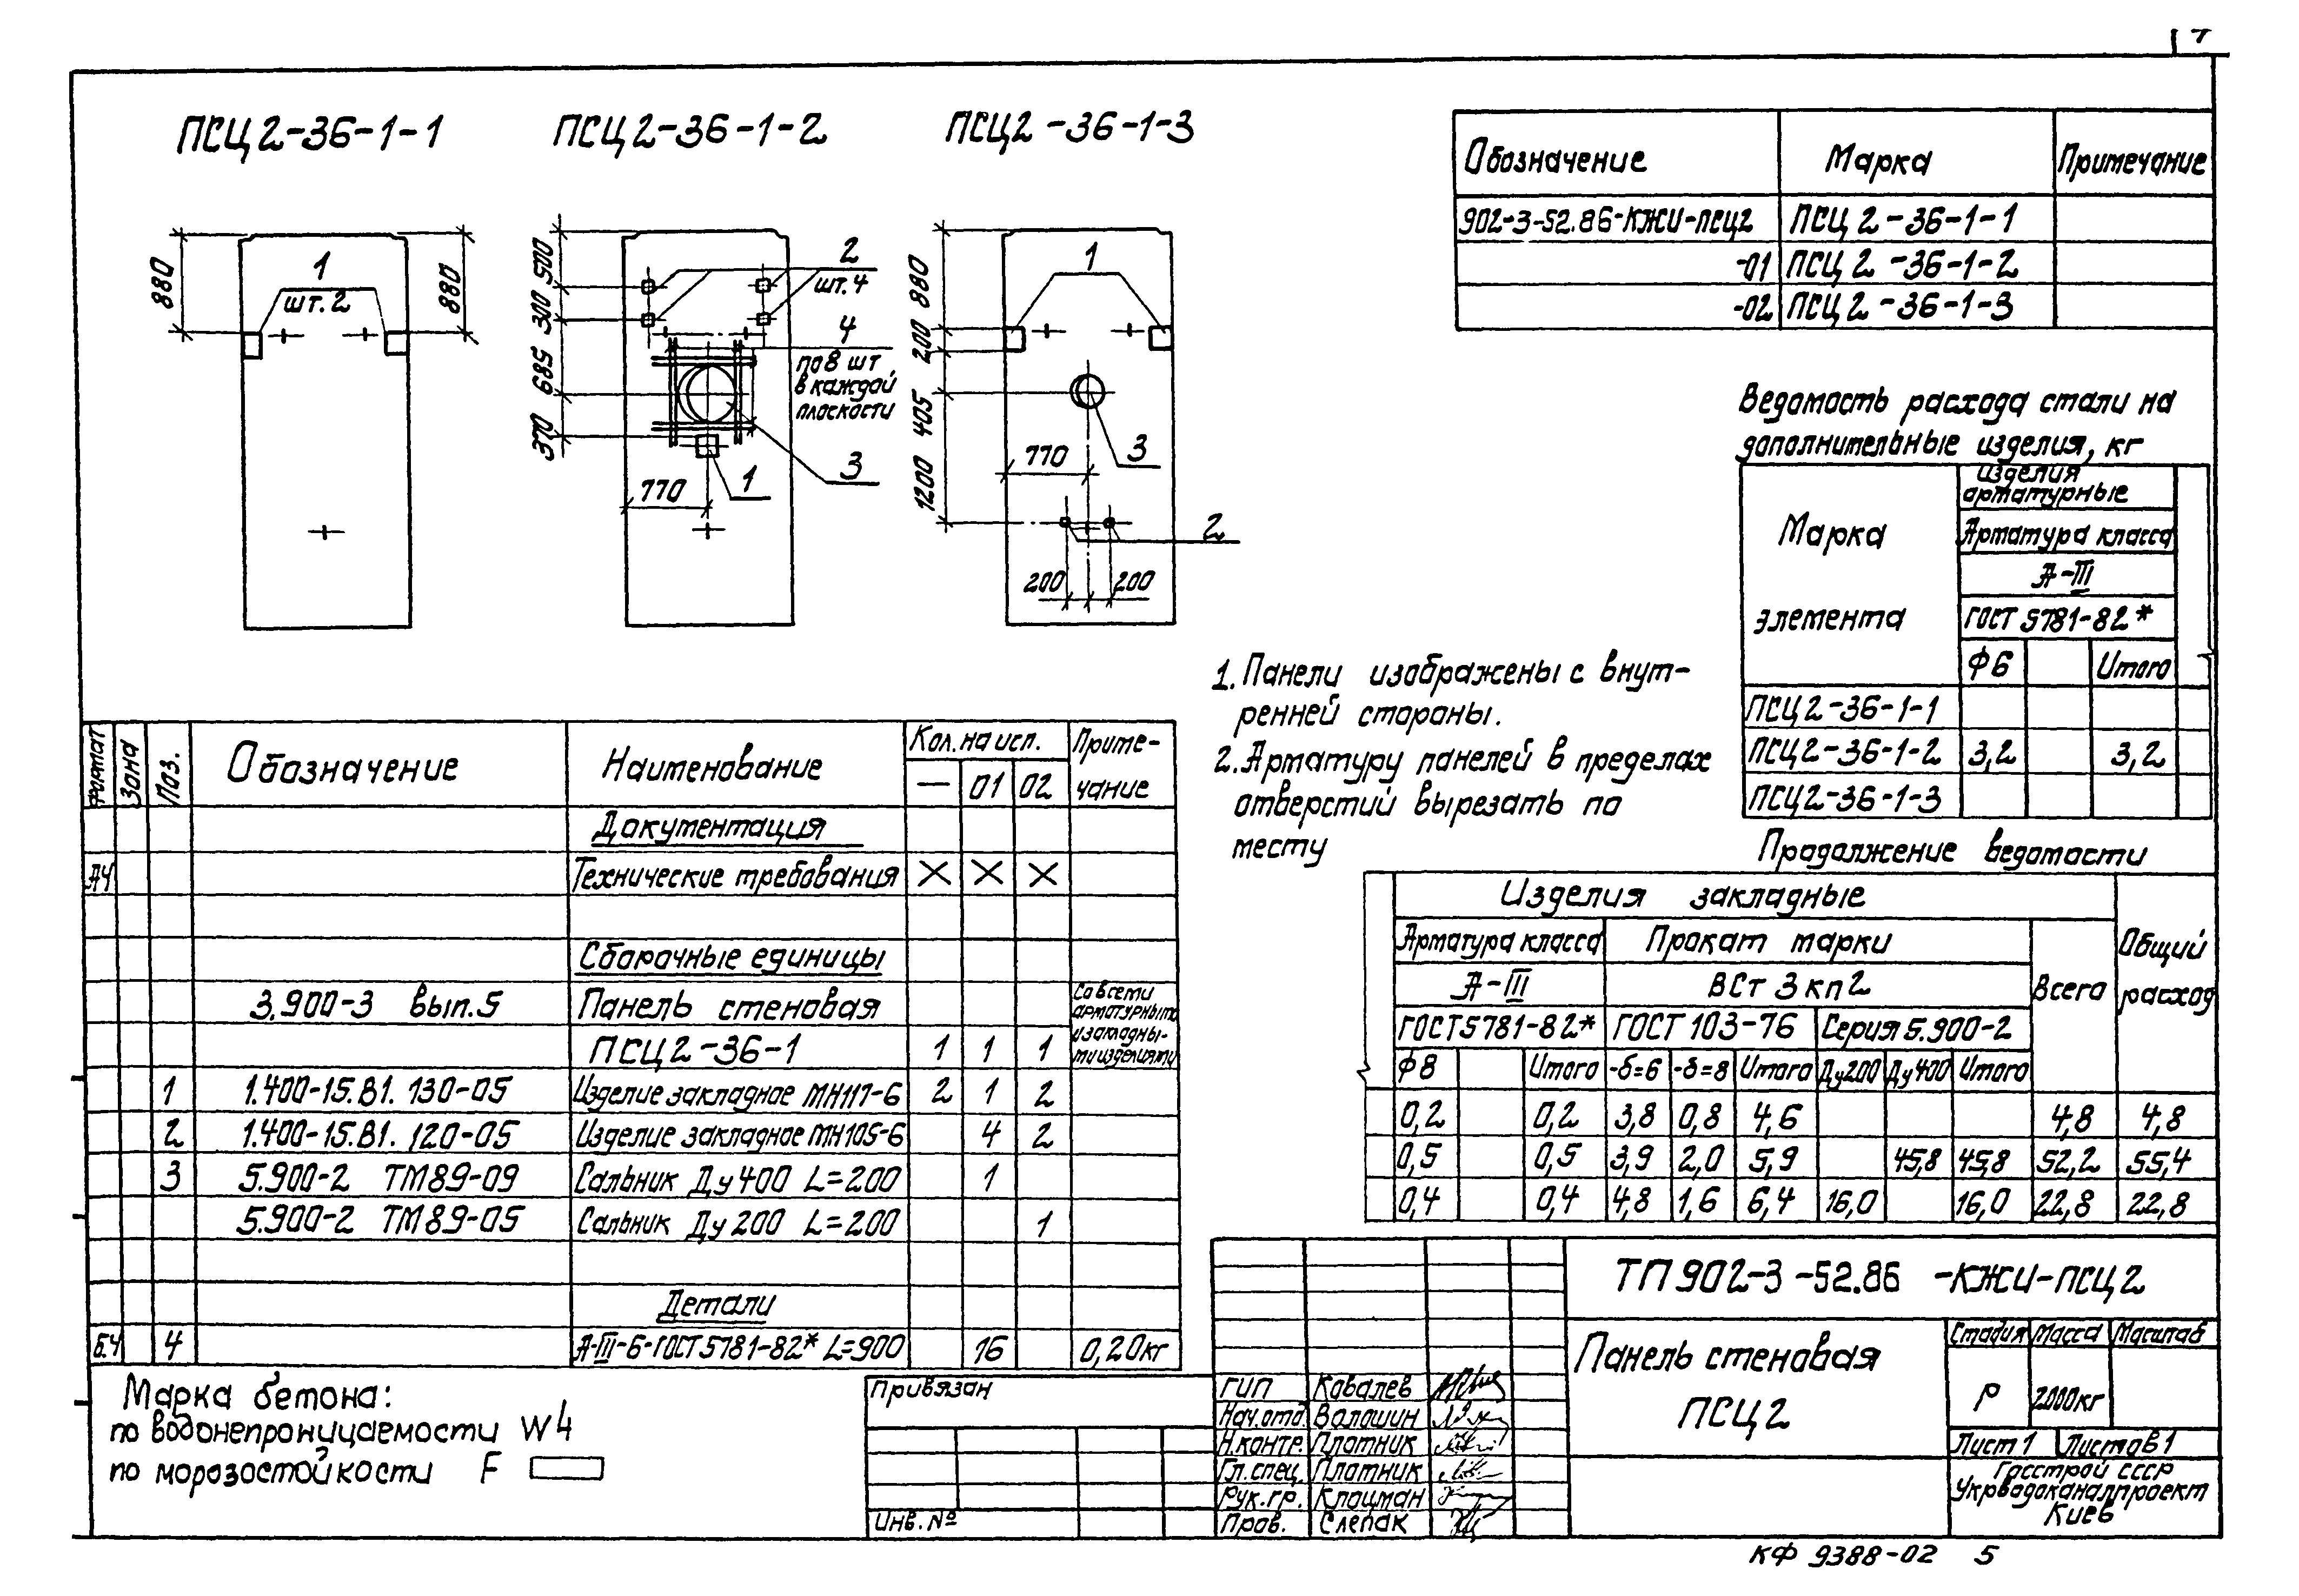 ПСЦ2-36-1-1
ПСЦ2-36-1-2
ПСЦ2-36-1-3
880
1
шт. 2
880
500
300
685
370
2
шт. 4
4
по 8 шт
в каждой
плоскости
3
1
770
880
200
405
1200
1
3
770
2
200
200
Обозначение Марка Примечание
902-3-52.86-КЖИ-ПСЦ2 ПСЦ2-36-1-1
-01 ПСЦ2-36-1-2
-02 ПСЦ2-36-1-3
Ведомость расхода стали на
дополнительные изделия, кг
Марка
элемента
изделия
арматурные
Арматура класса
А-III
ГОСТ 5781-82*
Ф6 Итого
ПСЦ2-36-1-1
ПСЦ2-36-1-2 3,2 3,2
ПСЦ2-36-1-3
1. Панели изображены с внут-
ренней стороны.
2. Арматуру панелей в пределах
отверстий вырезать по
месту
Продолжение ведомости
Изделия закладные
Арматура класса Прокат марки
Всего
Общий
расход
А-III ВСт 3 кп2
ГОСТ 5781-82* ГОСТ 103-76 Серия 5.900-2
Ф8 Итого -δ=6 -δ=8 Итого Ду200 Ду400 Итого
0,2 0,2 3,8 0,8 4,6 4,8 4,8
0,5 0,5 3,9 2,0 5,9 45,8 45,8 52,2 55,4
0,4 0,4 4,8 1,6 6,4 16,0 16,0 22,8 22,8
Формат Зона Поз. Обозначение Наименование Кол. на исп. Приме-
чание
— 01 02
Документация
А4 Технические требования X X X
Сборочные единицы
3.900-3 вып.5 Панель стеновая
Со всеми
арматурными
и закладны-
ми изделиями
ПСЦ2-36-1 1 1 1
1 1.400-15.В1. 130-05 Изделие закладное МН117-6 2 1 2
2 1.400-15.В1. 120-05 Изделие закладное МН105-6 4 2
3 5.900-2 ТМ89-09 Сальник Ду400 L=200 1
5.900-2 ТМ89-05 Сальник Ду200 L=200 1
Детали
Б.Ч 4 А-III-6-ГОСТ5781-82* L=900 16 0,20кг
Марка бетона:
по водонепроницаемости W4
по морозостойкости F
Привязан
Инв. №
ГИП Ковалев
Нач.отд. Валашин
Н.контр. Плотник
Гл.спец. Плотник
Рук.гр. Клацман
Пров. Слепак
ТП 902-3-52.86 -КЖИ-ПСЦ2
Панель стеновая
ПСЦ2
Стадия Масса Масштаб
Р 2000кг
Лист 1 Листов 1
Госстрой СССР
Укрводоканалпроект
Киев
КФ 9388-02 5